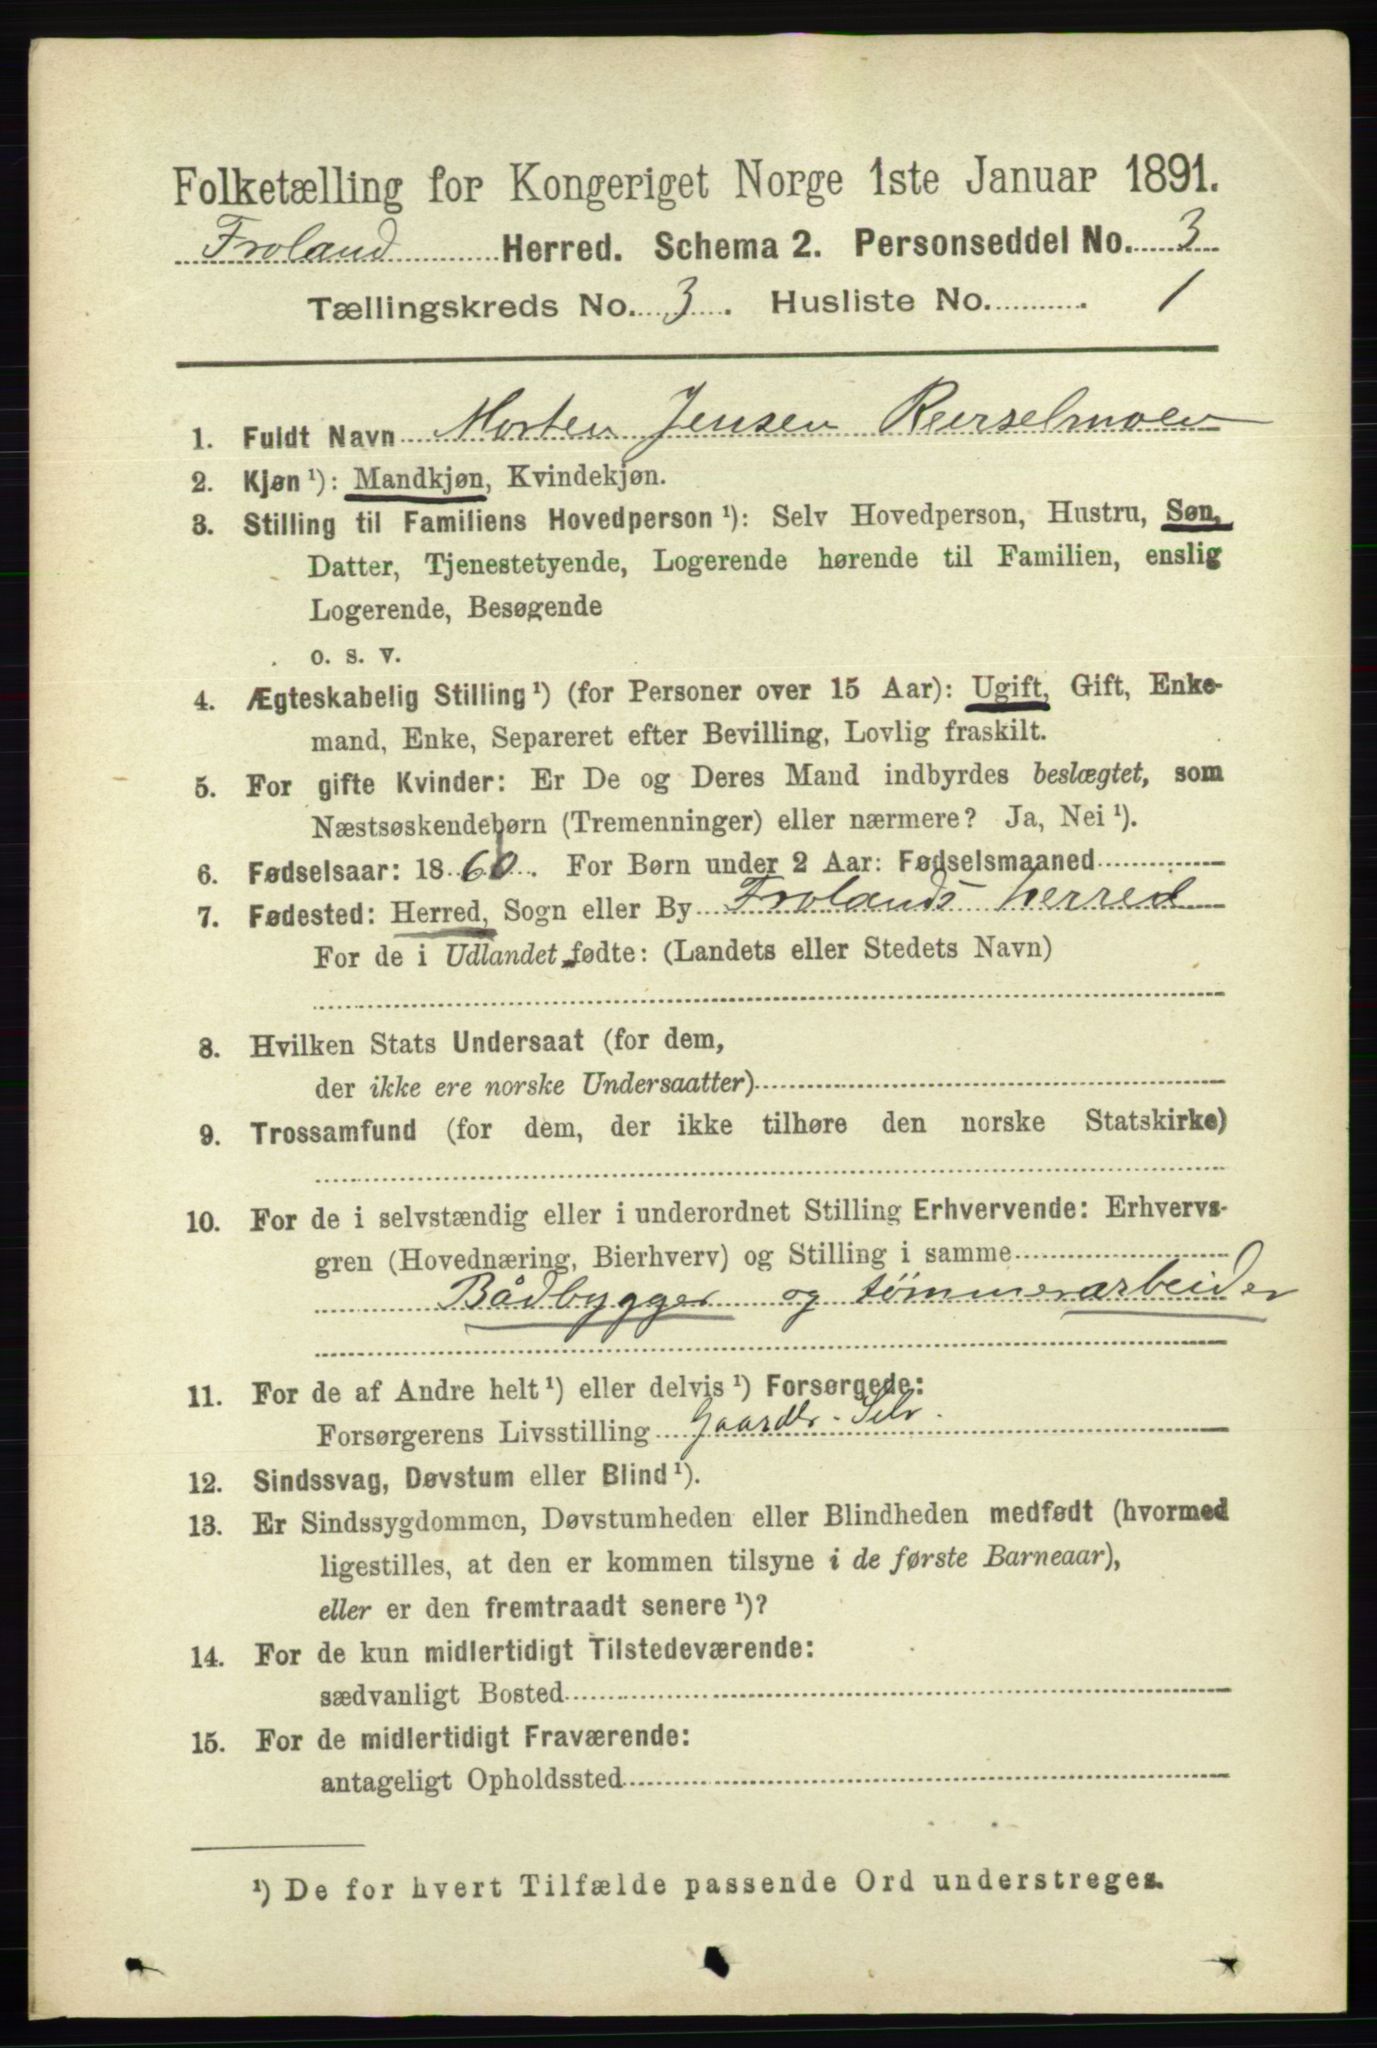 Folketælling for Kongeriget Norge 1ste Januar 1891.
Froland Herred. Schema 2. Personseddel No. 3
Tællingskreds No. 3. Husliste No. 1
1. Fuldt Navn Morten Jensen Reirselmoen
2. Kjøn ¹): Mandkjøn, Kvindekjøn.
3. Stilling til Familiens Hovedperson ¹): Selv Hovedperson, Hustru, Søn,
Datter, Tjenestetyende, Logerende hørende til Familien, enslig
Logerende, Besøgende
o. s. v.
4. Ægteskabelig Stilling ¹) (for Personer over 15 Aar): Ugift, Gift, Enke-
mand, Enke, Separeret efter Bevilling, Lovlig fraskilt.
5. For gifte Kvinder: Er De og Deres Mand indbyrdes beslægtet, som
Næstsøskendebørn (Tremenninger) eller nærmere? Ja, Nei ¹).
6. Fødselsaar: 1860. For Børn under 2 Aar: Fødselsmaaned
7. Fødested: Herred, Sogn eller By Frolands herred
For de i Udlandet fødte: (Landets eller Stedets Navn)
8. Hvilken Stats Undersaat (for dem,
der ikke ere norske Undersaatter)
9. Trossamfund (for dem, der ikke tilhøre den norske Statskirke)
10. For de i selvstændig eller i underordnet Stilling Erhvervende: Erhvervs-
gren (Hovednæring, Bierhverv) og Stilling i samme
Bådbygger og tømmerarbeider
11. For de af Andre helt ¹) eller delvis ¹) Forsørgede:
Forsørgerens Livsstilling Gaardbr. Selv.
12. Sindssvag, Døvstum eller Blind ¹).
13. Er Sindssygdommen, Døvstumheden eller Blindheden medfødt (hvormed
ligestilles, at den er kommen tilsyne i de første Barneaar),
eller er den fremtraadt senere ¹)?
14. For de kun midlertidigt Tilstedeværende:
sædvanligt Bosted
15. For de midlertidigt Fraværende:
antageligt Opholdssted
¹) De for hvert Tilfælde passende Ord understreges.